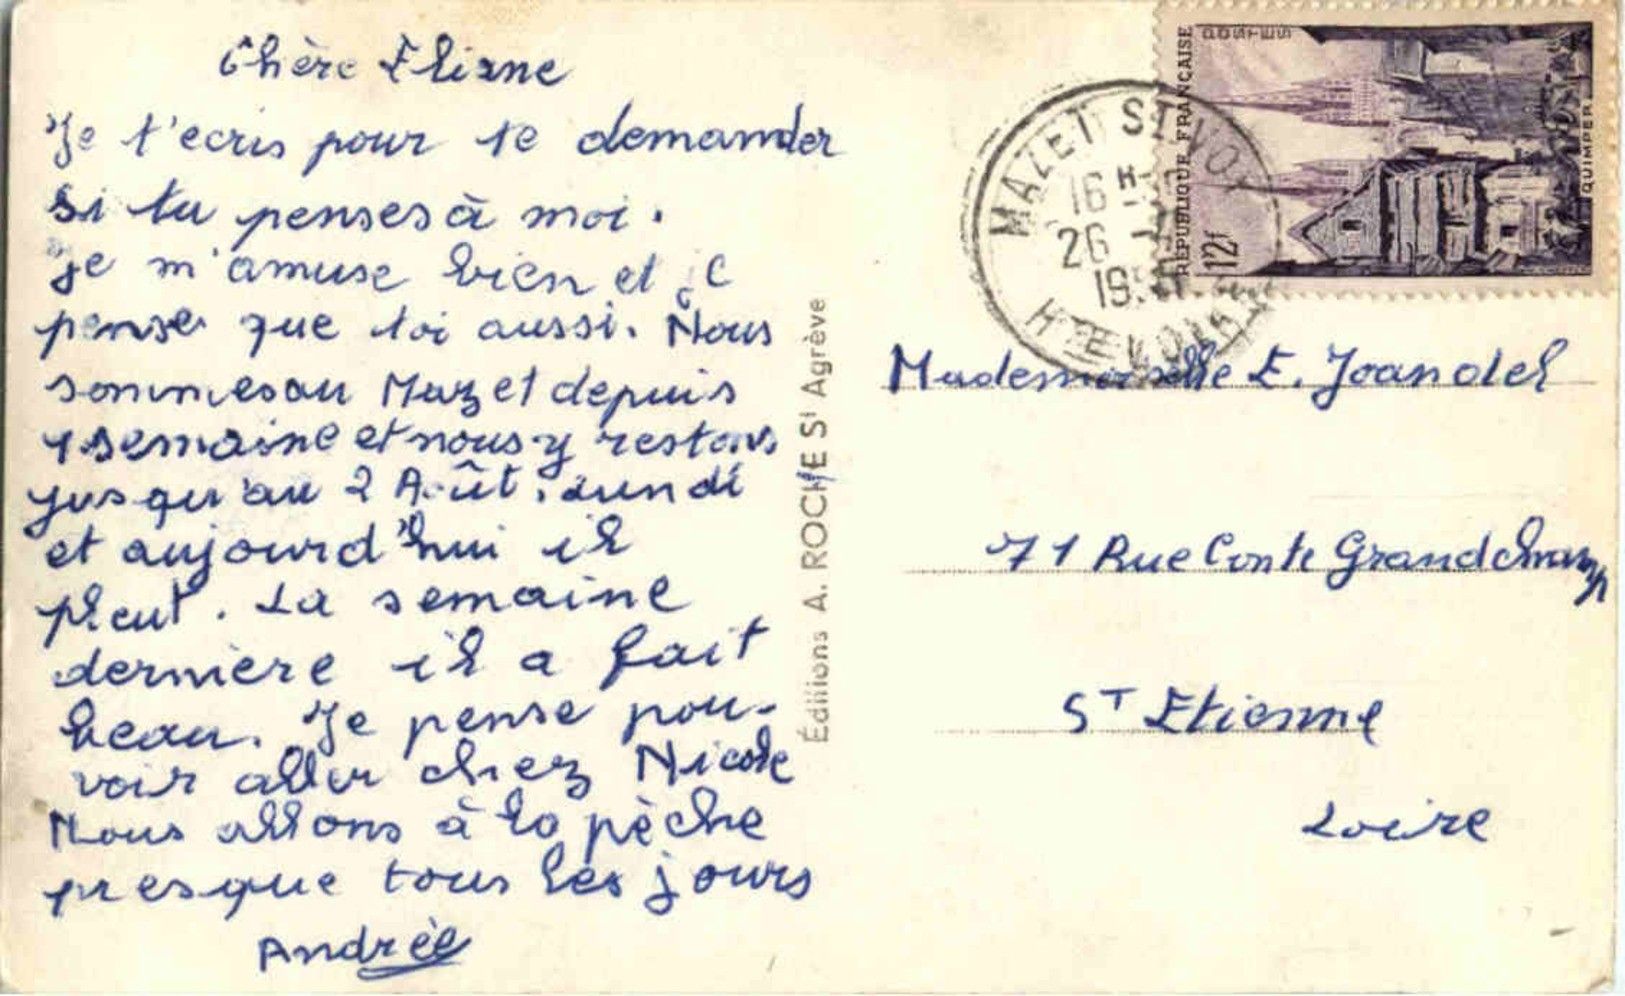 Chère Eliane
Je t'ecris pour te demander
si tu penses à moi.
Je m'amuse bien et je
pense que toi aussi. Nous
sommes au Mazet depuis
1 semaine et nous y restons
jusqu'au 2 Août. Lundi
et aujourd'hui il
pleut. La semaine
derniere il a fait
beau. Je pense pou-
voir aller chez Nicole
Nous allons à la pèche
presque tous les jours
Andrée
Éditions A. ROCHE St Agrève
RÉPUBLIQUE FRANÇAISE
POSTES
12f
QUIMPER
MAZET ST VOY
16 H
26
HTE LOIRE
Mademoiselle E. Joandel
71 Rue Conte Grandchamp
ST Etienne
Loire